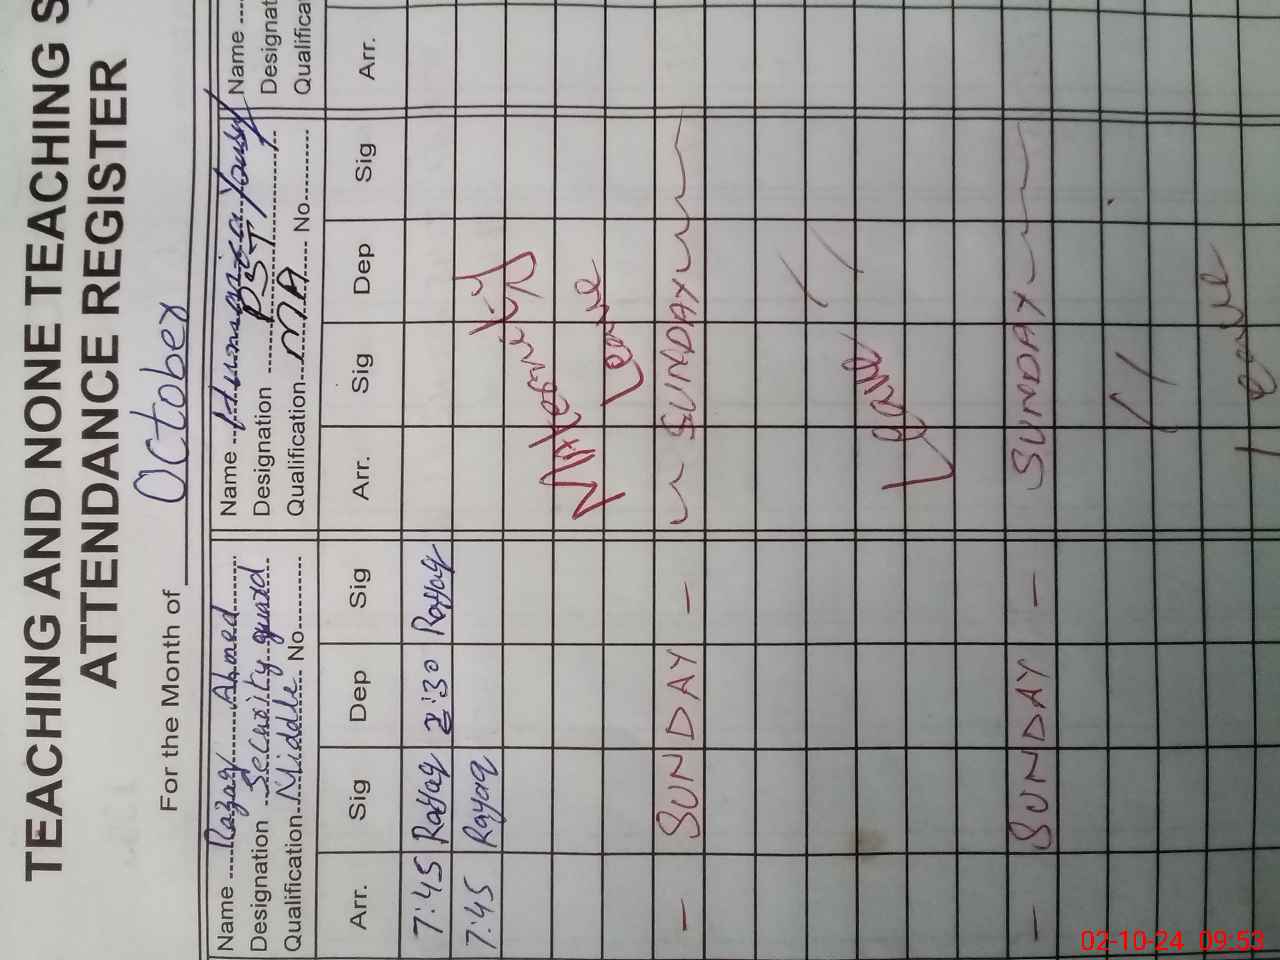 TEACHING AND NONE TEACHING S
ATTENDANCE REGISTER
For the Month of October
Name Razaq Ahmed
Designation Security guard
Qualification Middle No
Arr. Sig Dep Sig
7:45 Razaq 2:30 Razaq
7:45 Razaq
- SUNDAY -
- SUNDAY -
Name Humaira Yousaf
Designation PST
Qualification MA No
Arr. Sig Dep Sig
Maternity
Leave
SUNDAY
Leave
SUNDAY
Leave
Name
Designat
Qualificat
Arr.
02-10-24 09:53